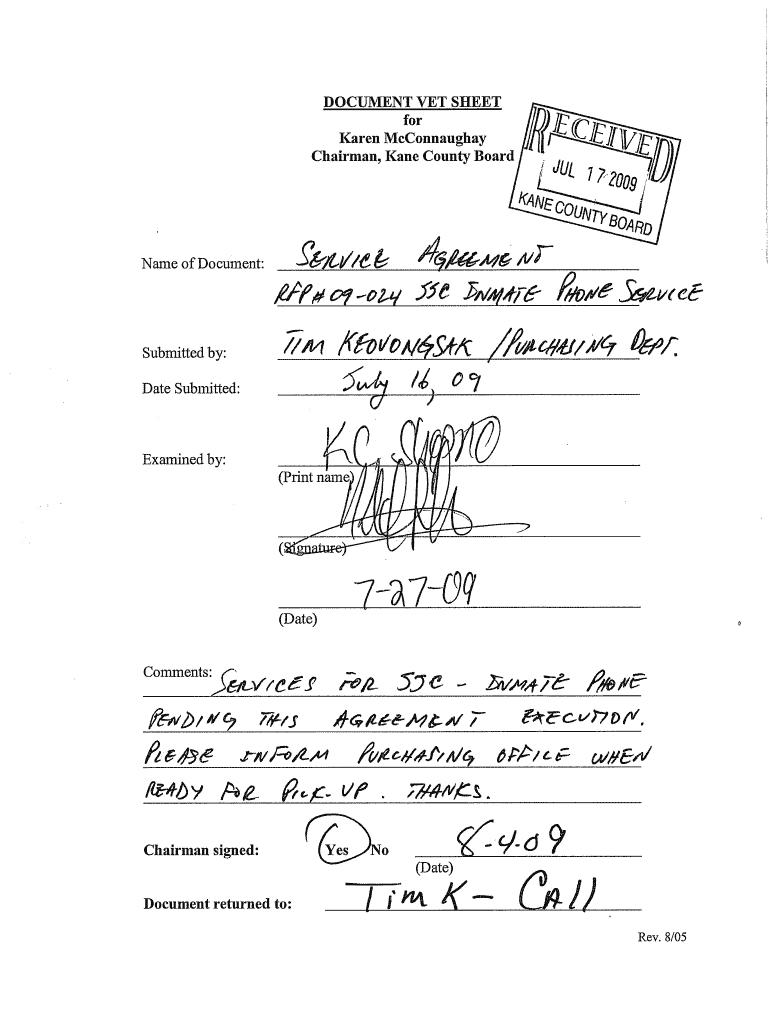 DOCUMENT VET SHEET
for
Karen McConnaughay
Chairman, Kane County Board
RECEIVED
JUL 17 2009
KANE COUNTY BOARD
Name of Document: SERVICE AGREEMENT
RFP# 09-024 SSC INMATE PHONE SERVICE
Submitted by: TIM KEOVONGSAK / PURCHASING DEPT.
Date Submitted: July 16, 09
Examined by: K.C.
(Print name)
(Signature)
7-27-09
(Date)
Comments: SERVICES FOR SJC - INMATE PHONE
PENDING THIS AGREEMENT EXECUTION.
PLEASE INFORM PURCHASING OFFICE WHEN
READY FOR PICK-UP. THANKS.
Chairman signed: Yes No 8-4-09
(Date)
Document returned to: Tim K - CAll
Rev. 8/05